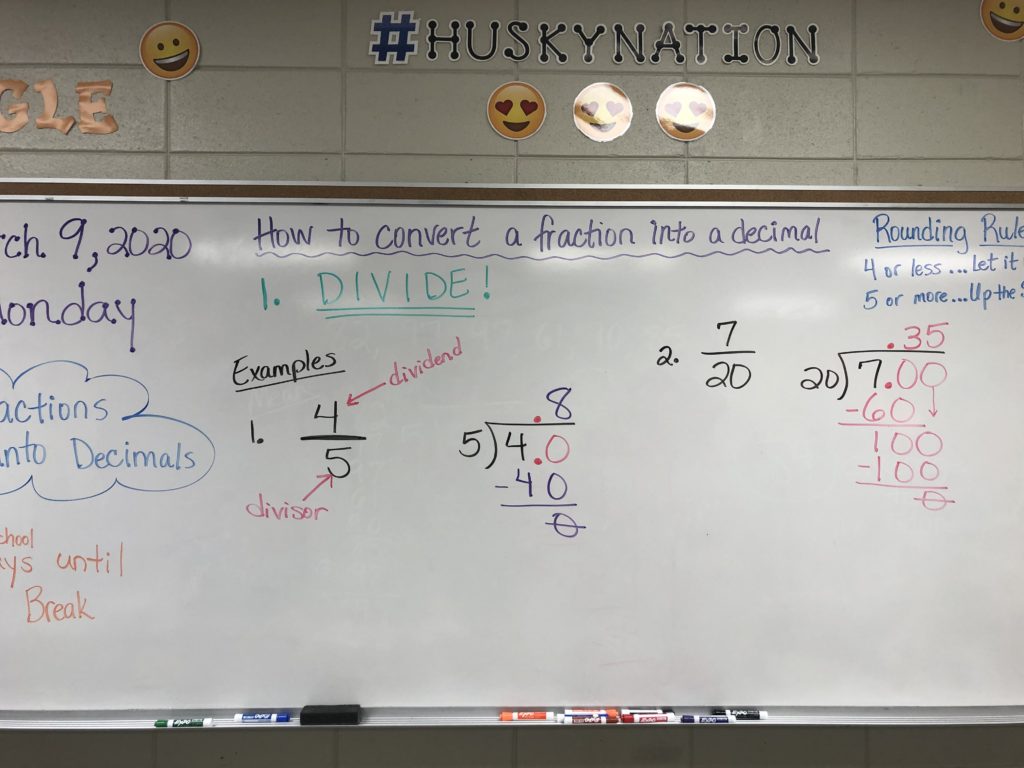 #HUSKYNATION
GLE
rch 9, 2020
onday
actions
into Decimals
chool
ys until
Break
How to convert a fraction into a decimal
1. DIVIDE!
Examples
1. 4
5
dividend
divisor
.8
5)4.0
-40
0
2. 7
20
.35
20)7.00
-60
100
-100
0
Rounding Rule
4 or less...Let it
5 or more...Up the